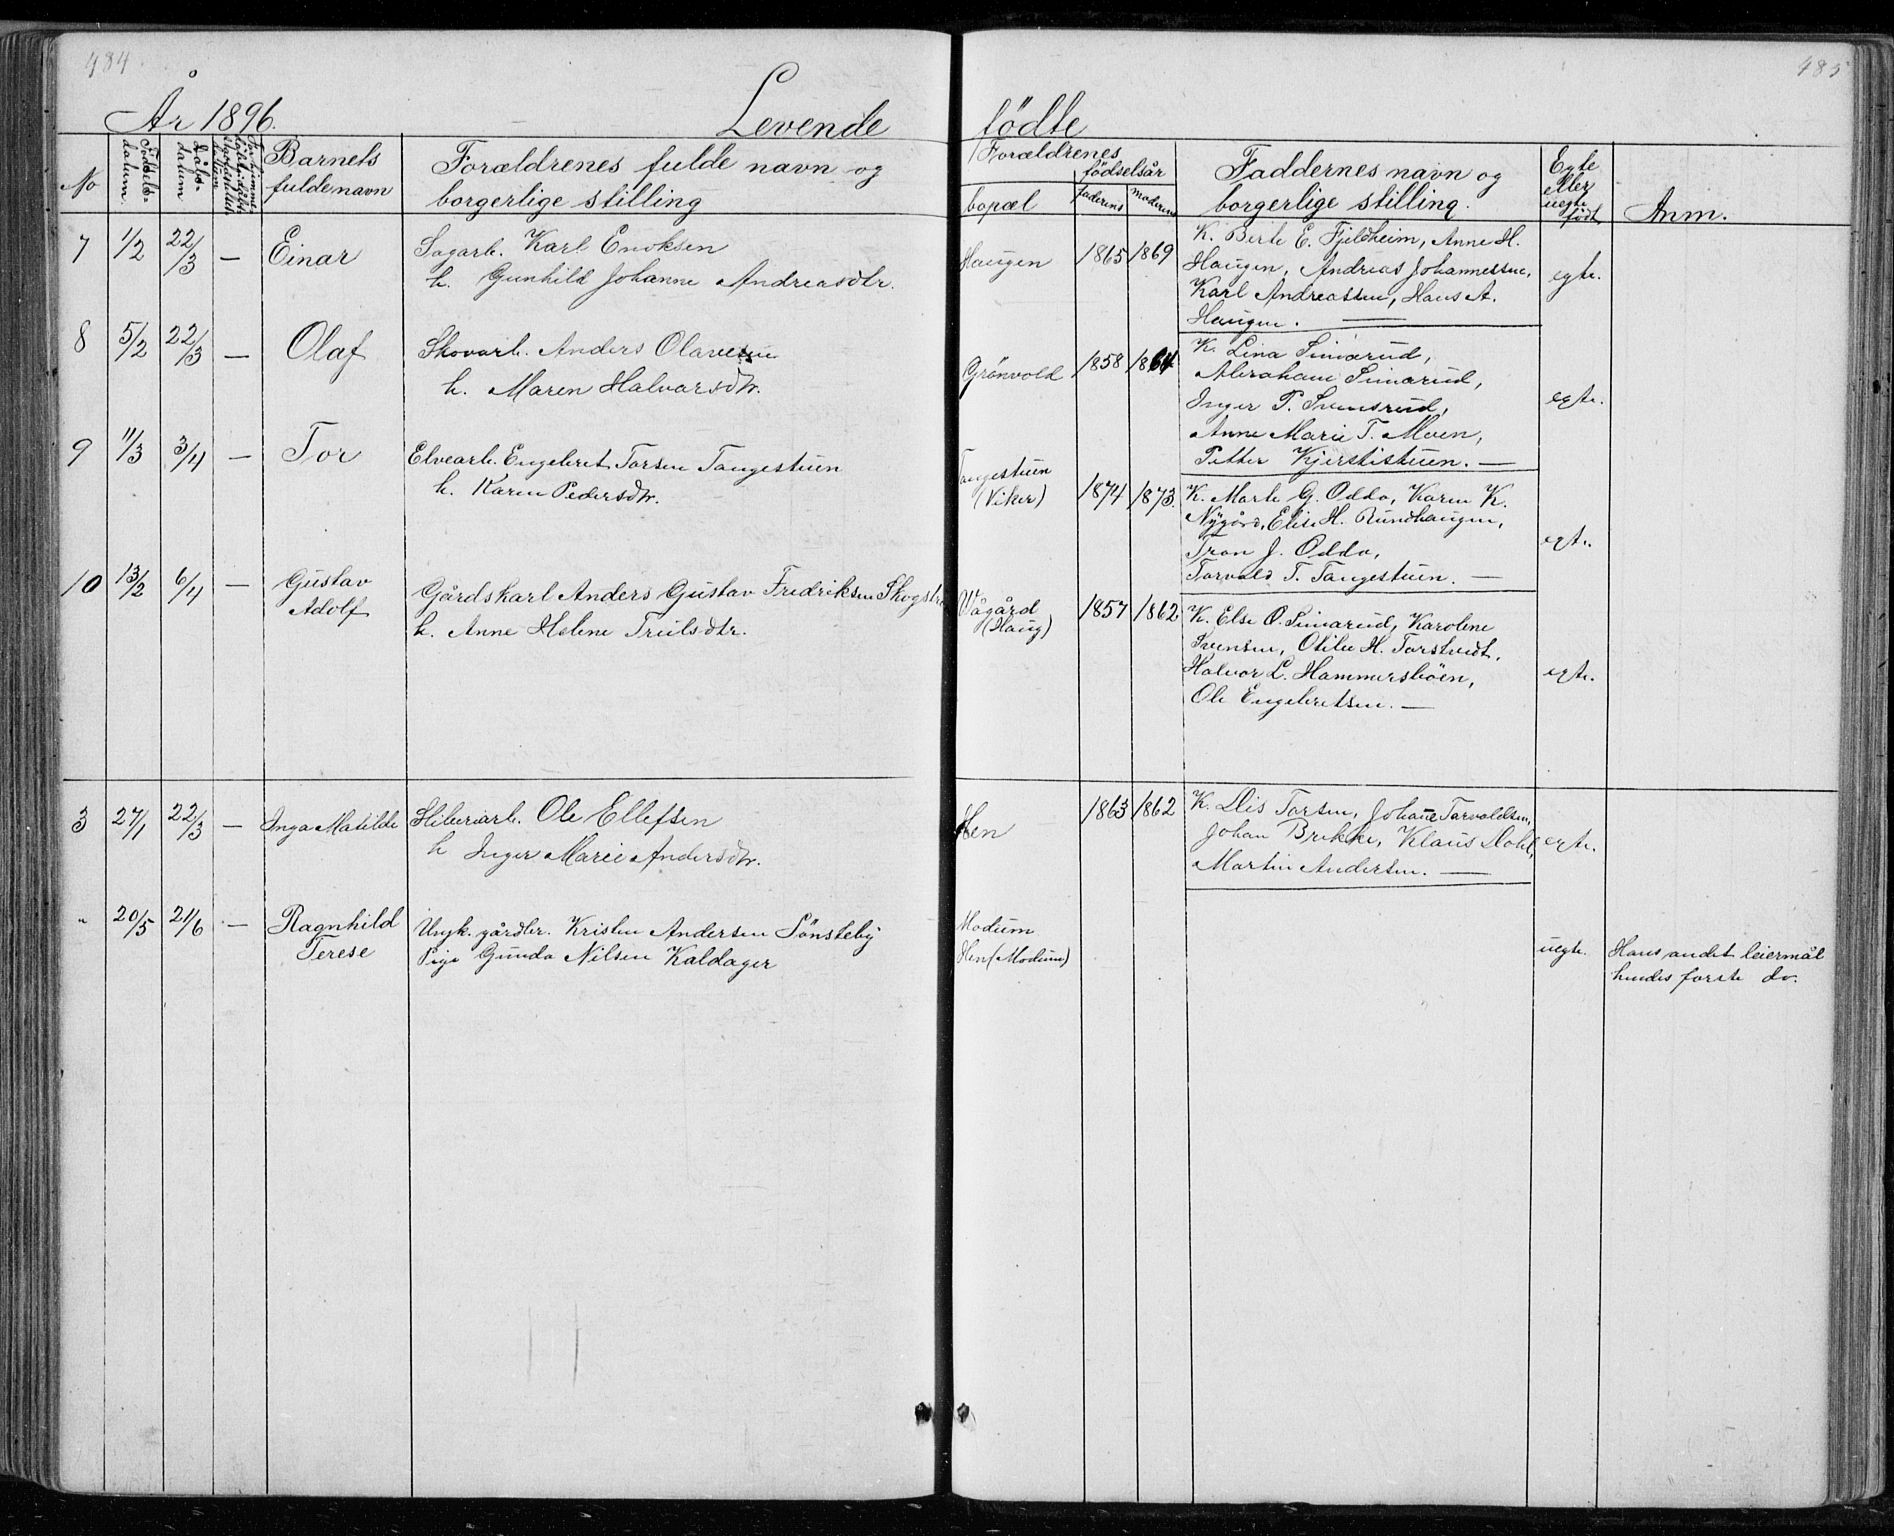 484
485
År 1896.
Levende
födte
No
Födsels-
datum.
Dåbs-
datum
Barnets
fulde navn
Forældrenes fulde navn og
borgerlige stilling
Forældrenes
bopæl
födselsår
faderens
moderens
Faddernes navn og
borgerlige stilling.
Egte
eller
uegte
födt
Anm.
7 1/2 22/3 — Einar
Sagarb. Karl Enoksen
h. Gunhild Johanne Andreasdtr.
Haugen 1865 1869
K. Berte E. Fjeldheim, Anne H.
Haugen, Andreas Johannessen,
Karl Andreassen, Hans A.
Haugen. —
egte.
8 5/2 22/3 — Olaf
Skovarb. Anders Olavesen
h. Maren Halvarsdtr.
Grönvold 1858 1864
K. Lina Simarud,
Abraham Simarud,
Inger P. Svensrud,
Anne Marie T. Moen,
Petter Kjerstistuen. —
egte.
9 11/3 3/4 — Tor
Elvearb. Engebret Torsen Tangestuen
h. Karen Pedersdtr.
Tangestuen
(Viker)
1874 1873.
K. Marte G. Odda, Karen K.
Nygård, Elise H. Rundhaugen,
Tron J. Odda,
Torvald T. Tangestuen. —
egte.
10 13/2 6/4 — Gustav
Adolf
Gårdskarl Anders Gustav Fredriksen
h. Anne Helene Trulsdtr.
Vågård
(Haug)
1857 1862
K. Else O. Simarud, Karolene
Svensen, Otilie H. Torstvedt,
Halvor L. Hammersböen,
Ole Engebretsen. —
egte.
3 27/1 22/3 — Inga Matilde
Sliberiarb. Ole Ellefsen
h Inger Marie Andersdtr.
Hen 1863 1862
K. Dis Torsen, Johane Torvaldsen,
Johan Brekke, Klaus Dahl,
Martin Andersen. —
egte.
" 20/5 21/6 — Ragnhild
Terese
Ungk. gårdbr. Kristen Andersen Sönsteby
Pige Gunda Nilsen Kaldager
Modum
Hen (Modum)
uegte.
Hans andet leiermål
hendes förste do.